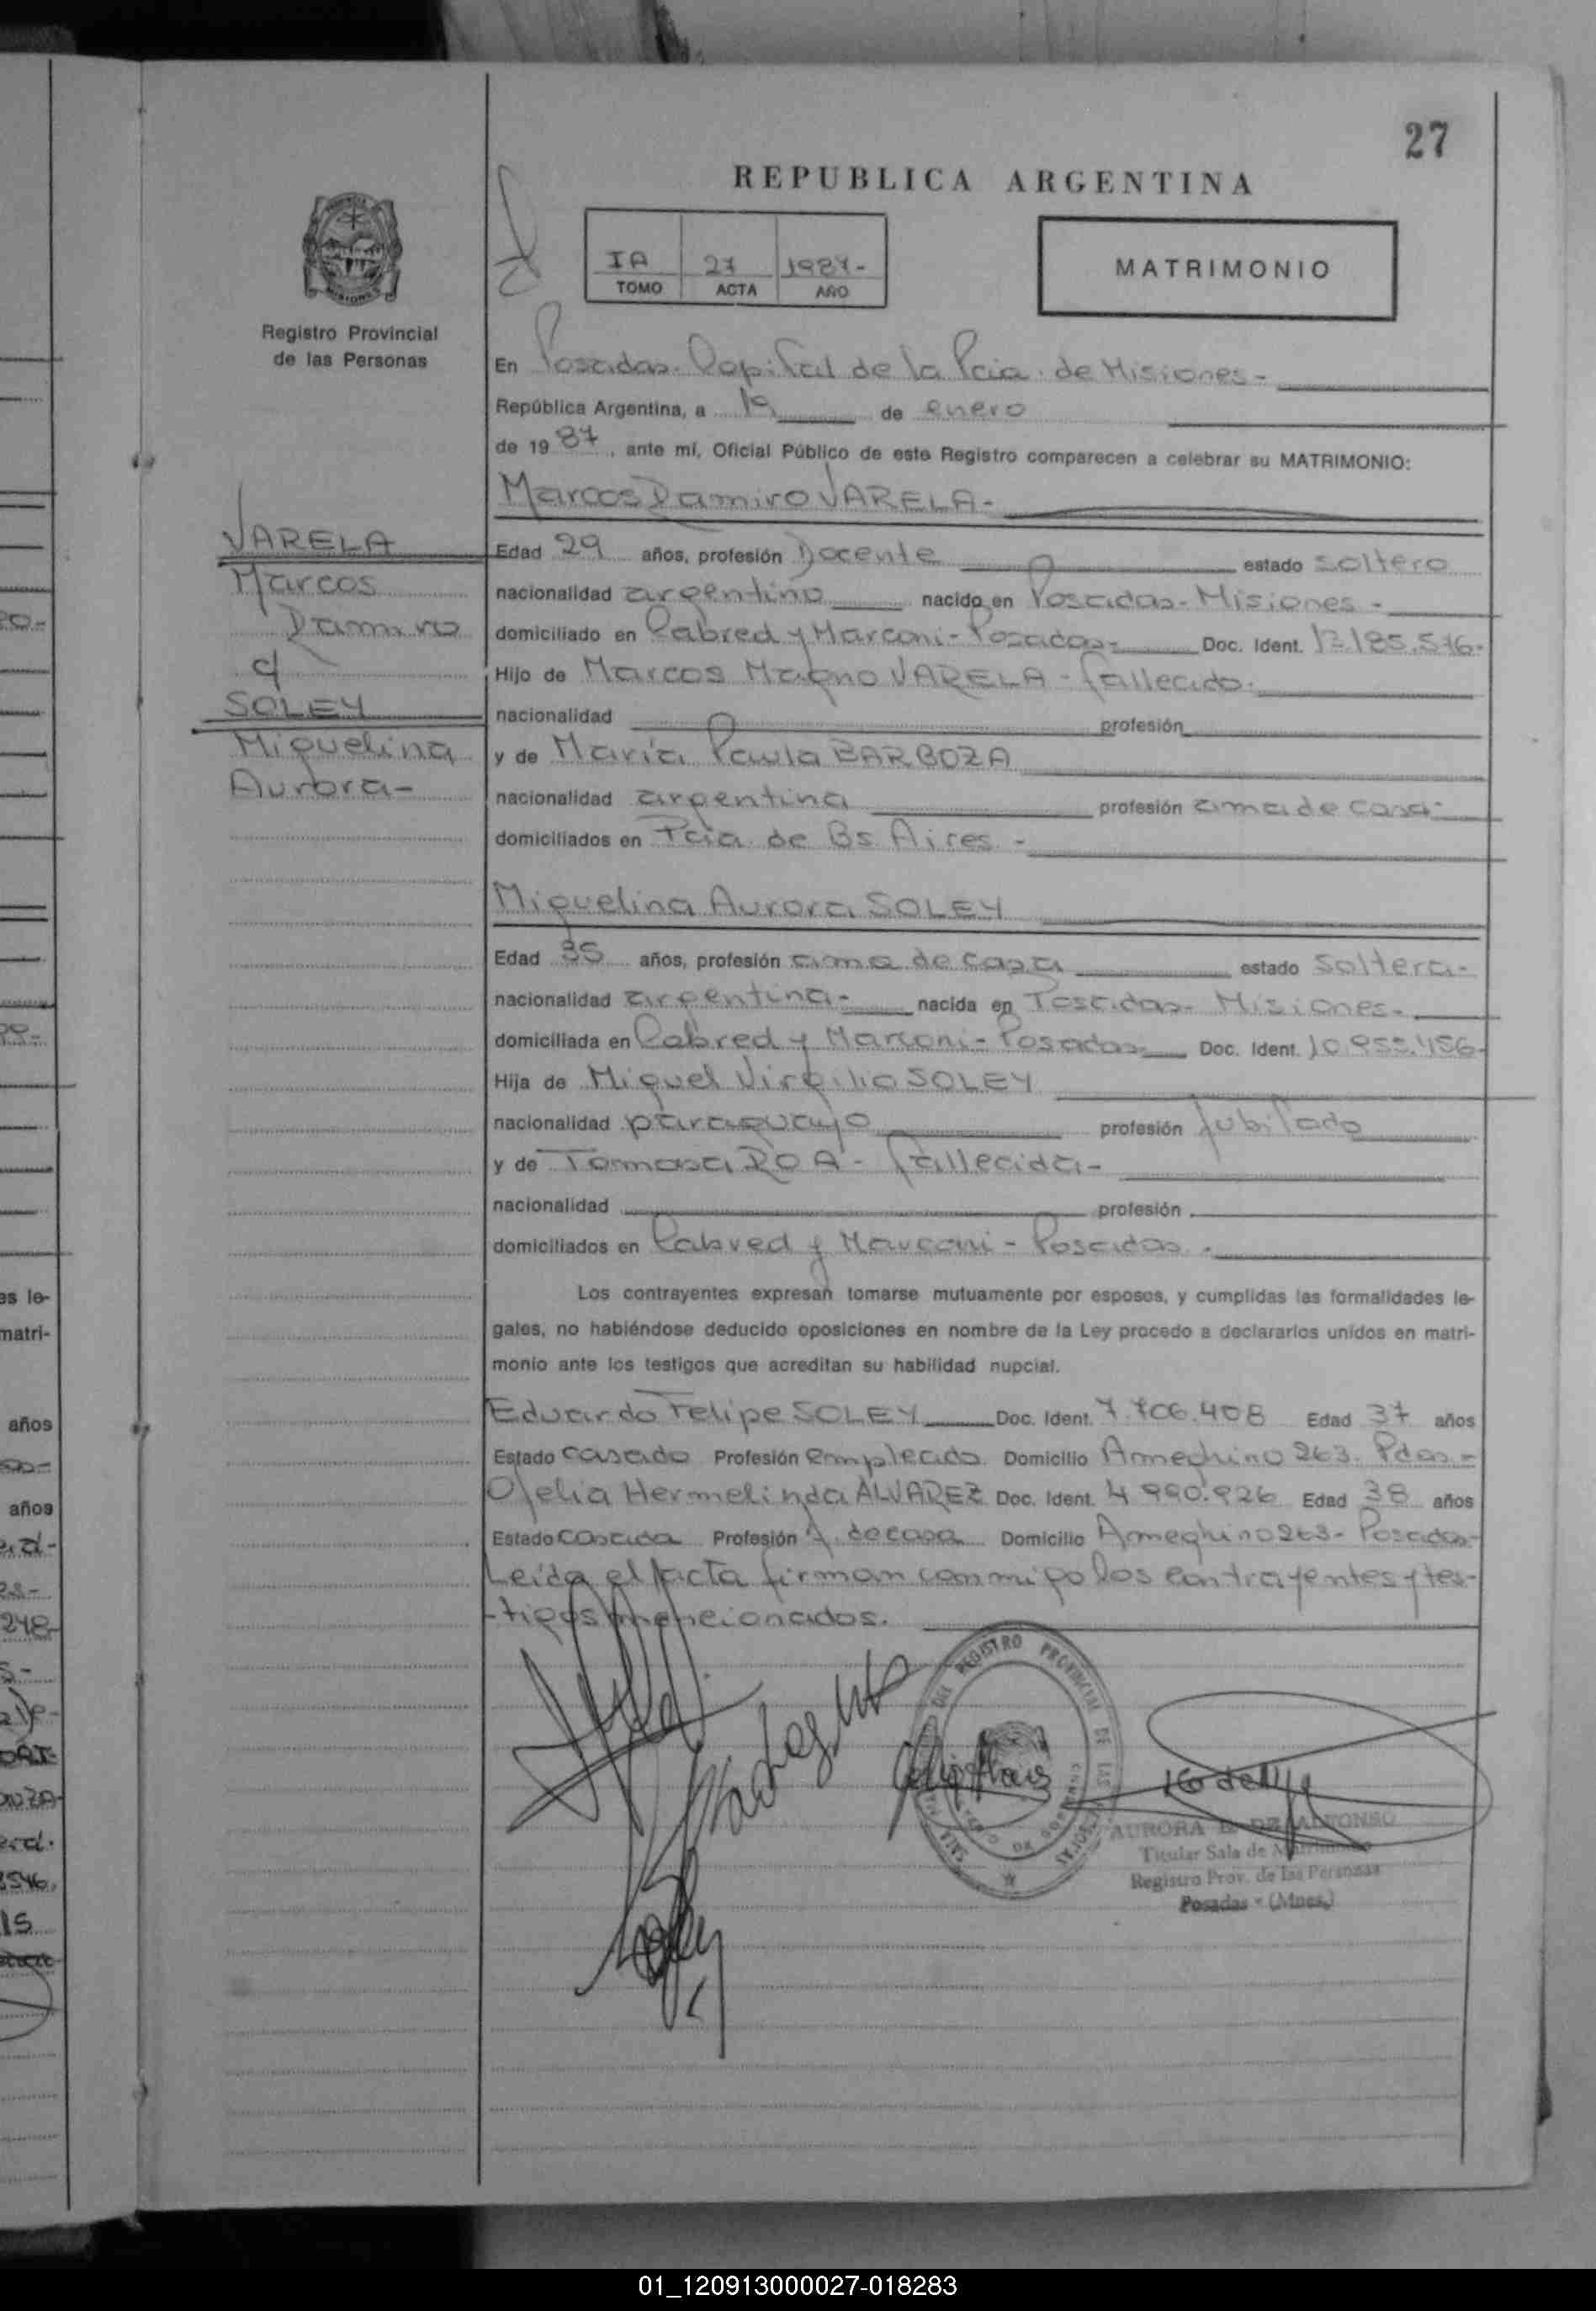 27
REPUBLICA ARGENTINA
IA 27 1987-
TOMO ACTA AÑO
MATRIMONIO
Registro Provincial
de las Personas
En Posadas. Capital de la Pcia. de Misiones-
República Argentina, a 19 de enero
de 1987, ante mí, Oficial Público de este Registro comparecen a celebrar su MATRIMONIO:
Marcos Ramiro VARELA-
VARELA
Marcos
Ramiro
c/
SOLEY
Miguelina
Aurora-
Edad 29 años, profesión Docente estado soltero
nacionalidad argentino nacido en Posadas- Misiones-
domiciliado en Cabred y Marconi- Posadas- Doc. Ident.
Hijo de Marcos Magno VARELA - fallecido.
nacionalidad profesión
y de María Paula BARBOZA
nacionalidad argentina profesión ama de casa-
domiciliados en Pcia. de Bs. Aires. -
Miguelina Aurora SOLEY
Edad 35 años, profesión ama de casa estado soltera-
nacionalidad argentina- nacida en Posadas- Misiones-
domiciliada en Cabred y Marconi- Posadas- Doc. Ident.
Hija de Miguel Virgilio SOLEY
nacionalidad paraguayo profesión jubilado
y de Tomasa ROA - fallecida-
nacionalidad profesión
domiciliados en Cabred y Marconi - Posadas.
Los contrayentes expresan tomarse mutuamente por esposos, y cumplidas las formalidades le-
gales, no habiéndose deducido oposiciones en nombre de la Ley procedo a declararlos unidos en matri-
monio ante los testigos que acreditan su habilidad nupcial.
Eduardo Felipe SOLEY Doc. Ident. 7.706.408 Edad 37 años
Estado casado Profesión empleado Domicilio Ameghino 263. Pdas.-
Ofelia Hermelinda ALVAREZ Doc. Ident. 4.990.926 Edad 38 años
Estado casada Profesión A. de casa Domicilio Ameghino 263- Posadas-
Leída el acta firman conmigo los contrayentes y tes-
-tigos mencionados.
DEL REGISTRO PROVINCIAL DE LAS
AURORA DE ALFONSO
Titular Sala de Matrimonio
Registro Prov. de las Personas
Posadas - (Mnes.)
es le-
matri-
años
años
248-
3546,
01_120913000027-018283